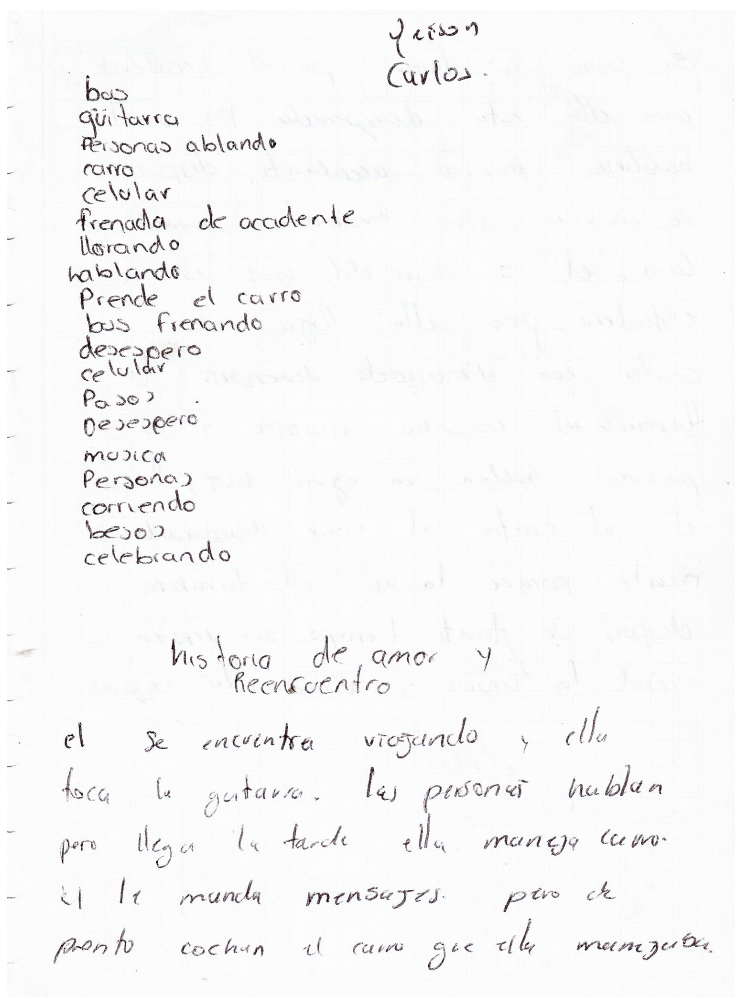 Yeison
Carlos.
bus
güitarra
Personas ablando
carro
celular
frenada de accidente
llorando
hablando
Prende el carro
bus frenando
desespero
celular
Pasos
Desespero
musica
Personas
corriendo
besos
celebrando
historia de amor y
Reencuentro
el se encuentra viajando y ella
toca la guitarra. las personas hablan
pero llega la tarde ella maneja carro.
el le manda mensajes. pero de
pronto cochan el carro que ella manejaba.